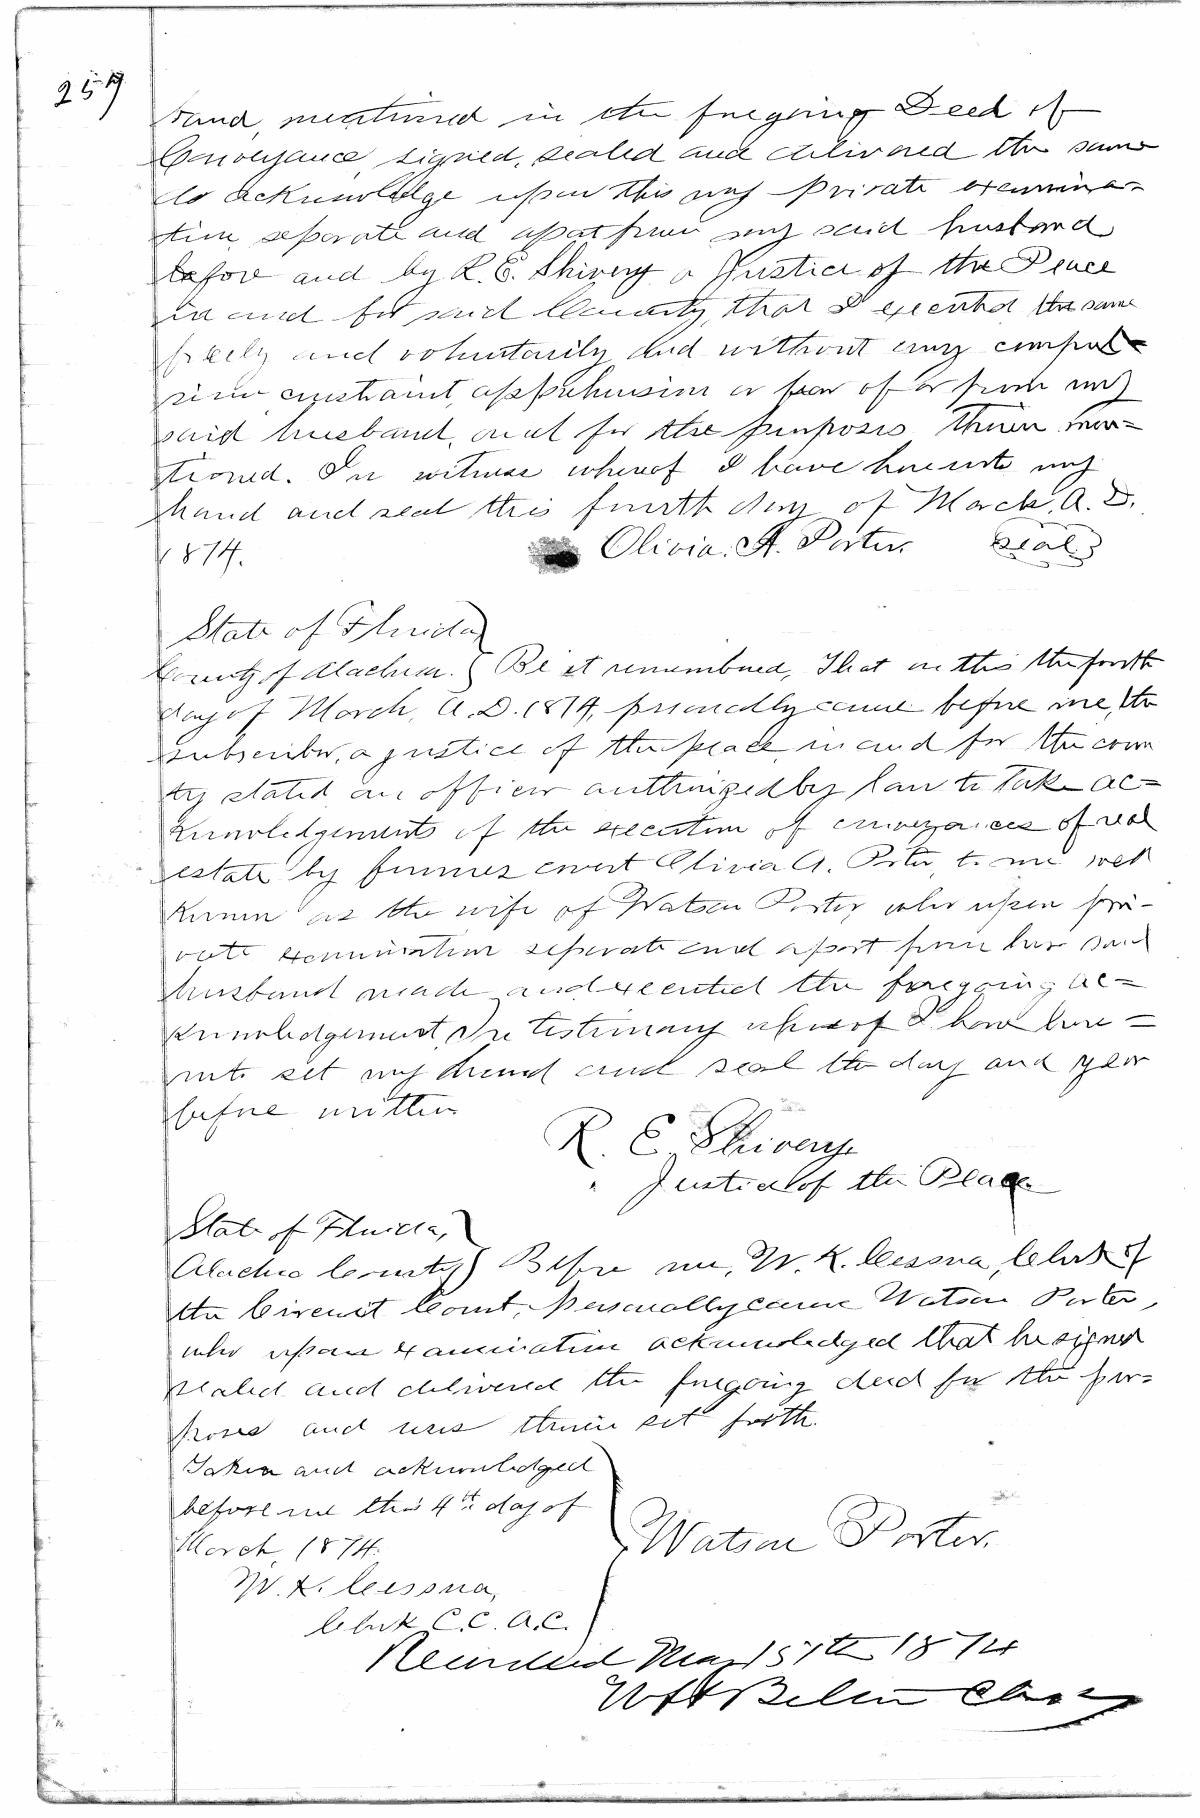 257
band, mentioned in the foregoing Deed of
Conveyance, signed, sealed and delivered the same
do acknowledge upon this my private examina=
tion separate and apart from my said husband
before and by R. E. Shivery a Justice of the Peace
in and for said County, that I executed the same
freely and voluntarily and without any compul=
sion constraint, apprehension or fear of or from my
said husband, and for the purposes therein men=
tioned. In witness whereof I have hereunto my
hand and seal this fourth day of March, A. D.
1874. Olivia. A. Porter. seal
State of Florida
County of Alachua. Be it remembered, That on this the fourth
day of March, A. D. 1874, personally came before me, the
subscriber, a justice of the peace in and for the coun
ty stated an officer authorized by law to take ac=
knowledgements of the execution of conveyances of real
estate by femmes covert Olivia A. Porter, to me well
known as the wife of Watson Porter, who upon pri-
vate examination separate and apart from her said
husband made and executed the foregoing ac=
knowledgement, In testimony whereof I have here=
unto set my hand and seal the day and year
before written
R. E. Shivery
Justice of the Peace
State of Florida,
Alachua County Before me, W. K. Cessna, Clerk of
the Circuit Court, personally came Watson Porter,
who upon examination acknowledged that he signed
sealed and delivered the foregoing deed for the pur=
poses and uses therein set forth.
Taken and acknowledged
before me this 4th day of
March, 1874. Watson Porter.
W. K. Cessna,
Clerk C. C. A. C.
Recorded May 15th 1874
Clerk